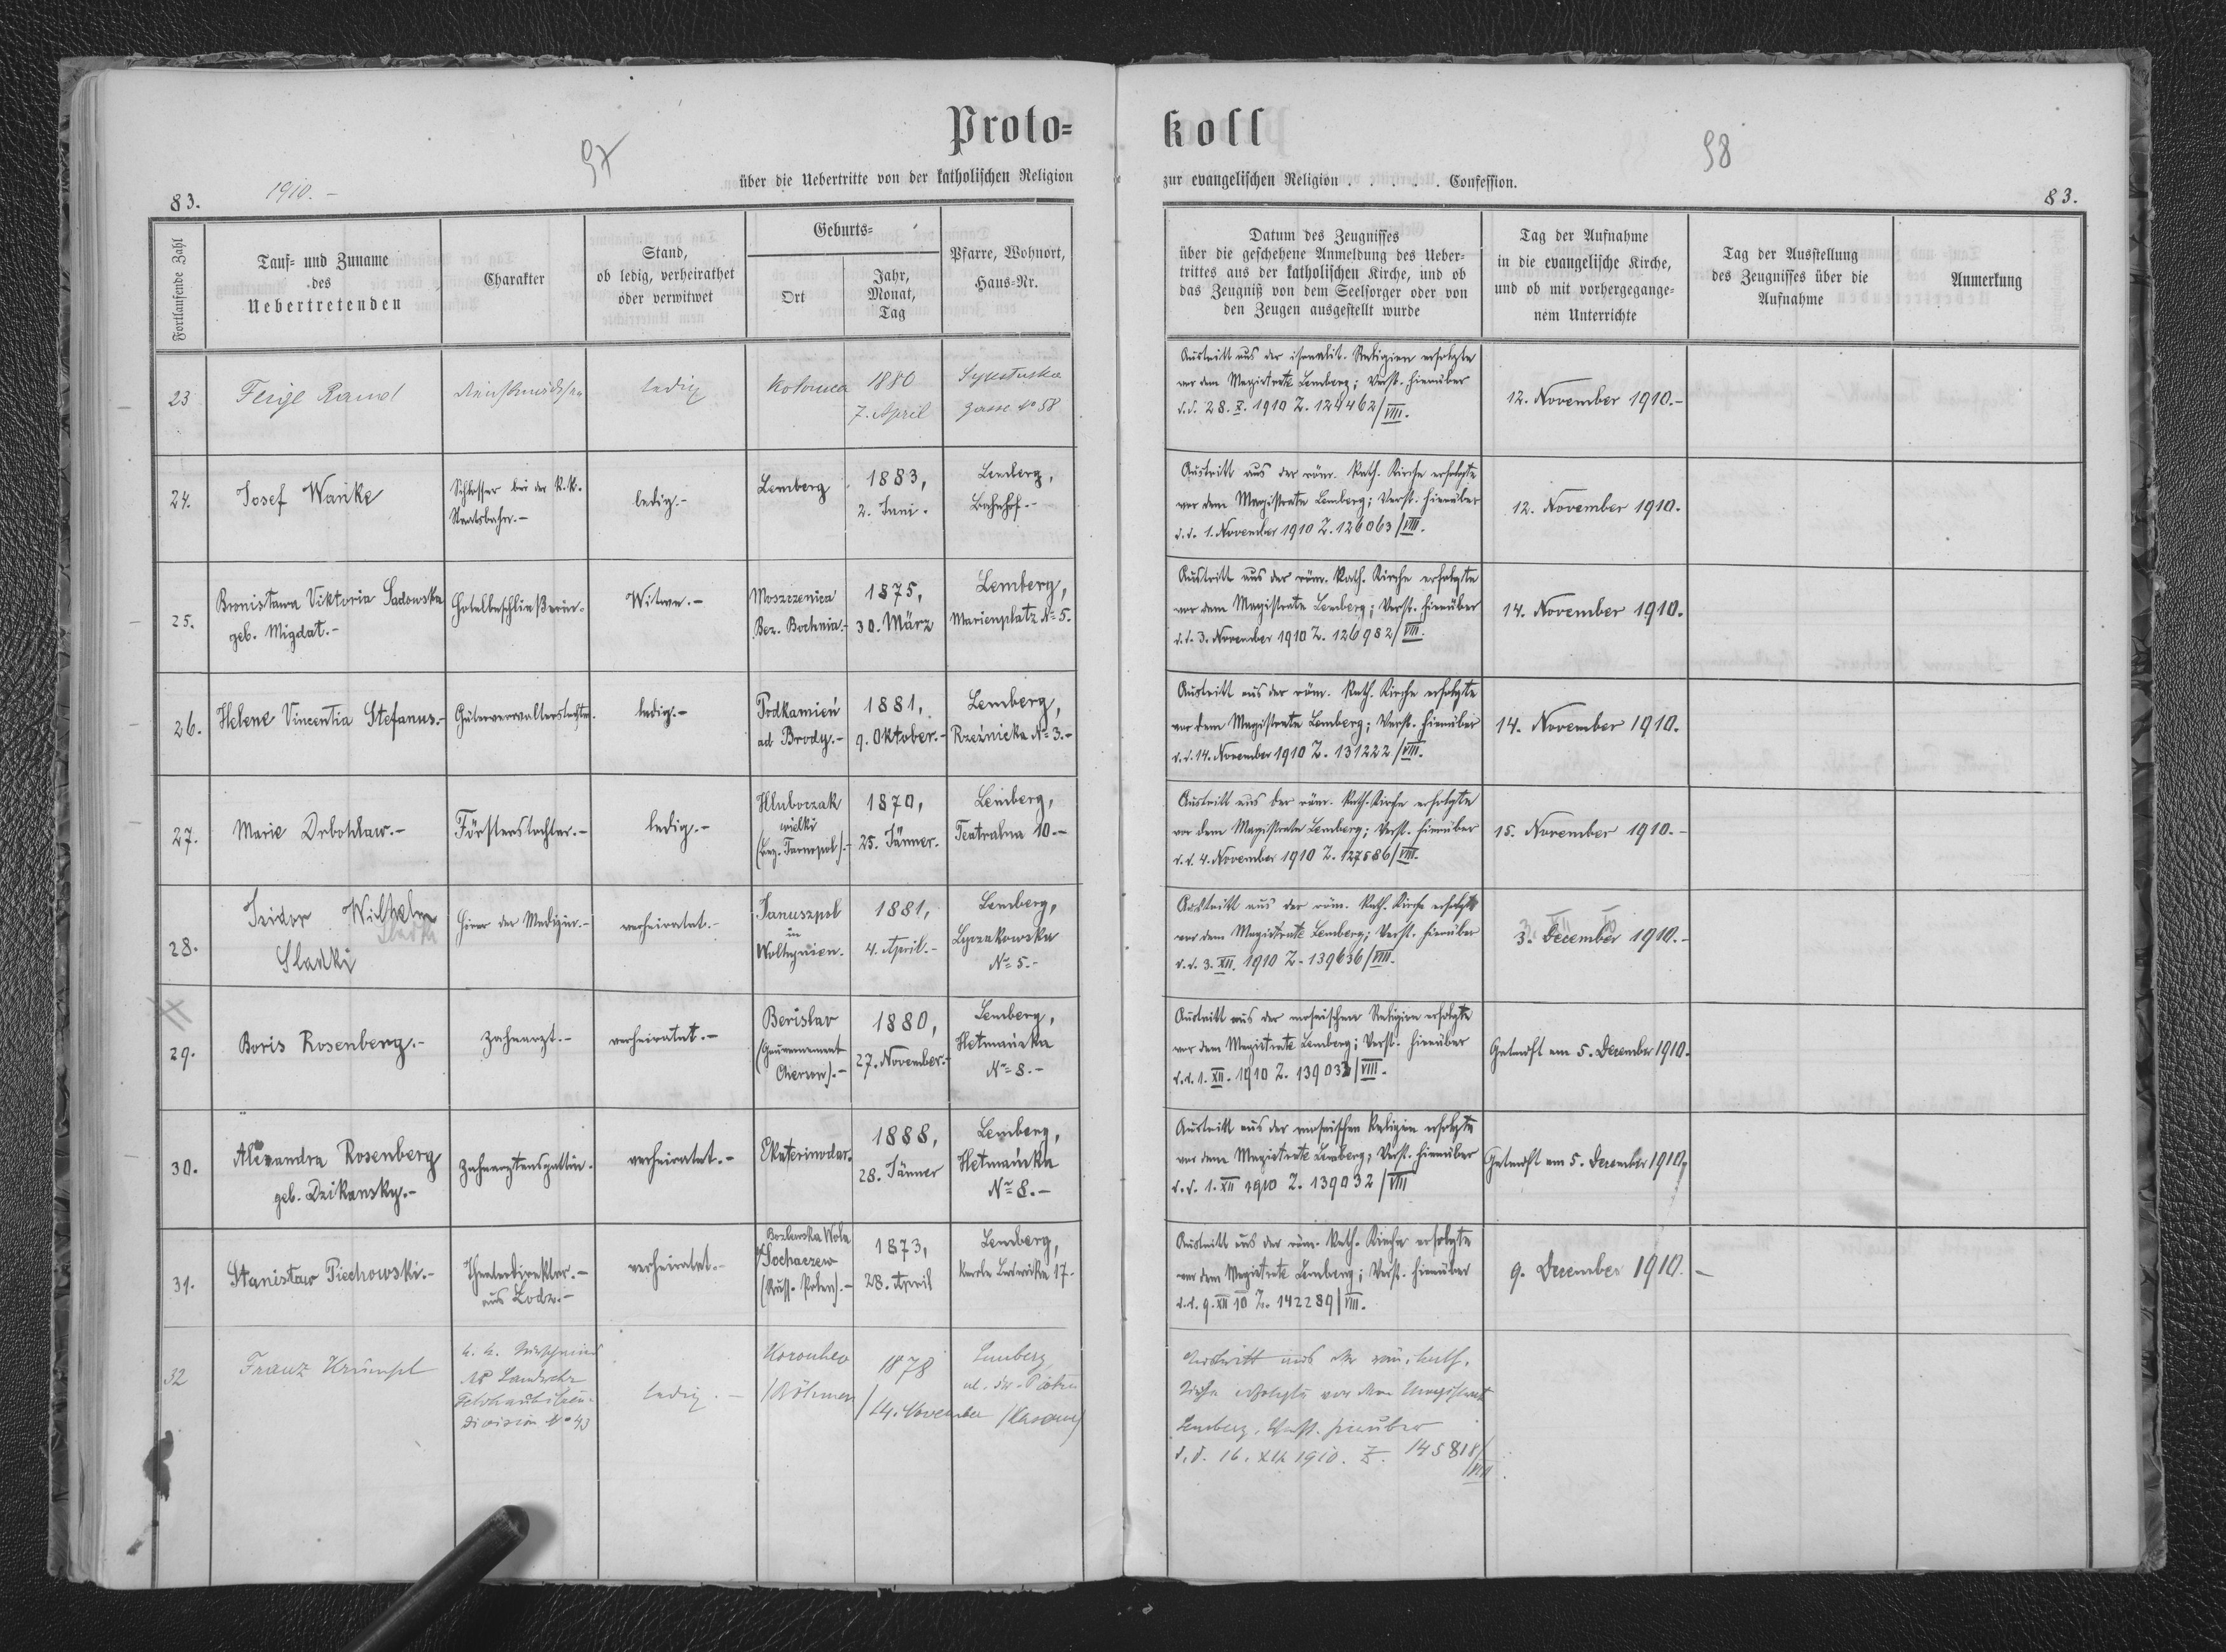 Proto=
97
über die Uebertritte von der katholischen Religion
83.
1910. –
Fortlaufende Zahl
Tauf= und Zuname
des
Uebertretenden
Charakter
Stand,
ob ledig, verheirathet
oder verwitwet
Geburts=
Ort
Jahr,
Monat,
Tag
Pfarre, Wohnort,
Haus=Nr.
23
Feige Rand
ledig
Kolomea
1880
7. April
Sykstuska
gasse No 58
24.
Josef Wanke
Schlosser bei der k.k.
Staatsbahn.–
ledig.–
Lemberg
1883,
2. Juni.
Lemberg,
Bahnhof.–
25.
Bronisława Viktoria Sadowska
geb. Migdat.–
Hotelbeschließerin.
Witwe.–
Moszczenica
Bez. Bochnia.–
1875,
30. März
Lemberg,
Marienplatz No 5.
26.
Helene Vincentia Stefanus.–
Güterverwalterstochter.
ledig.–
Podkamień
ad Brody.–
1881,
9. Oktober.–
Lemberg,
Rzeźnicka No 3.–
27.
Marie Drbohlaw.–
Försterstochter.–
ledig.–
Hluboczak
wielki
(Bez. Tarnopol).–
1870,
25. Jänner.
Lemberg,
Teatralna 10.–
28.
Isidor Wilhelm
Sladki
Hörer der Medizin.–
verheiratet.–
Januszpol
in
Wolhynien.
1881,
4. April.–
Lemberg,
Lyczakowska
No 5.–
29.
Boris Rosenberg.–
Zahnarzt.–
verheiratet.–
Berislav
(Gouvernement
Cherson).–
1880,
27. November.–
Lemberg,
Hetmańska
No 8.–
30.
Alexandra Rosenberg
geb. Dzikansky.–
Zahnarztensgattin.
verheiratet.–
Ekaterinodar.
1888,
28. Jänner
Lemberg,
Hetmańska
No 8.–
31.
Stanisław Piechowski.–
Theaterdirektor.–
aus Lodz.–
verheiratet.–
Wola
Sochaczew
(Russ. Polen).–
1873,
28. April
Lemberg,
Karla Ludwika 17.
32
Franz Krümpl
k. k.
Landwehr
Feldhaubitzen-
Division No 43
ledig.–
/Böhmen
1878
/14. November
Lemberg,
koll
98
zur evangelischen Religion . . . . . Confession.
83.
Datum des Zeugnisses
über die geschehene Anmeldung des Ueber=
trittes aus der katholischen Kirche, und ob
das Zeugniß von dem Seelsorger oder von
den Zeugen ausgestellt wurde
Tag der Aufnahme
in die evangelische Kirche,
und ob mit vorhergegange=
nem Unterrichte
Tag der Ausstellung
des Zeugnisses über die
Aufnahme
Anmerkung
Austritt aus der israelit. Religion erfolgte
vor dem Magistrate Lemberg; Verst. hierüber
d.d. 28. X. 1910 Z. 124462/VIII.
12. November 1910.–
Austritt aus der röm. kath. Kirche erfolgte
vor dem Magistrate Lemberg; Verst. hierüber
d.d. 1. November 1910 Z. 126063/VIII.
12. November 1910.
Austritt aus der röm. kath. Kirche erfolgte
vor dem Magistrate Lemberg; Verst. hierüber
d.d. 3. November 1910 Z. 126982/VIII.
14. November 1910.
Austritt aus der röm. kath. Kirche erfolgte
vor dem Magistrate Lemberg; Verst. hierüber
d.d. 14. November 1910 Z. 131222/VIII.
14. November 1910.
Austritt aus der röm. kath. Kirche erfolgte
vor dem Magistrate Lemberg; Verst. hierüber
d.d. 4. November 1910 Z. 127586/VIII.
15. November 1910.–
Austritt aus der röm. kath. Kirche erfolgte
vor dem Magistrate Lemberg; Verst. hierüber
d.d. 3. XII. 1910 Z. 139636/VIII.
3. December 1910.–
Austritt aus der mosaischen Religion erfolgte
vor dem Magistrate Lemberg; Verst. hierüber
d.d. 1. XII. 1910 Z. 139033/VIII.
Getauft am 5. Dezember 1910.
Austritt aus der mosaischen Religion erfolgte
vor dem Magistrate Lemberg; Verst. hierüber
d.d. 1. XII 1910 Z. 139032/VIII
Getauft am 5. Dezember 1910.
Austritt aus der röm. kath. Kirche erfolgte
vor dem Magistrate Lemberg; Verst. hierüber
d.d. 9. XII 10 Z. 142289/VIII.
9. Dezember 1910.–
Austritt aus der röm. kath.
Kirche erfolgte vor dem Magistrat
Lemberg, Verst. hierüber
d.d. 16. XII 1910. Z. 145818/
VIII.